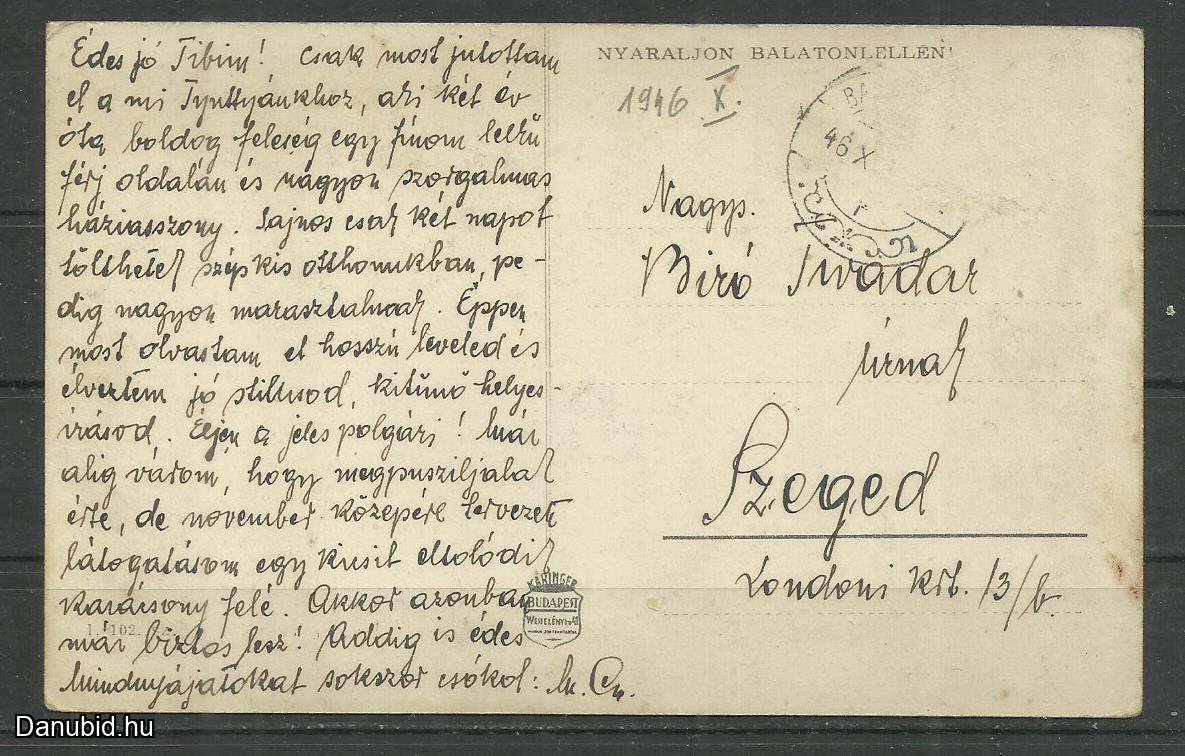 Édes jó Tibim! Csak most jutottam
el a mi Tyuttyánkhoz, aki két év
óta boldog feleség egy finom lelkű
férj oldalán és nagyon szorgalmas
háziasszony. Sajnos csak két napot
tölthetek szép kis otthonukban, pe-
dig nagyon marasztalnak. Éppen
most olvastam el hosszú leveled és
élveztem jó stílusod, kitünő helyes-
irásod. Éljen a jeles polgári! Már
alig várom, hogy megpusziljalak
érte, de november közepére tervezett
látogatásom egy kicsit eltolódik
karácsony felé. Akkor azonban
már biztos lesz! Addig is édes
Mindnyájatokat sokszor csókol:
NYARALJON BALATONLELLÉN!
1946 X.
BA
46 X
Nagys.
Biró Tivadar
úrnak
Szeged
Londoni krt. 13/b.
KARINGER
BUDAPEST
WESSELÉNYI U. 41
102.
Danubid.hu